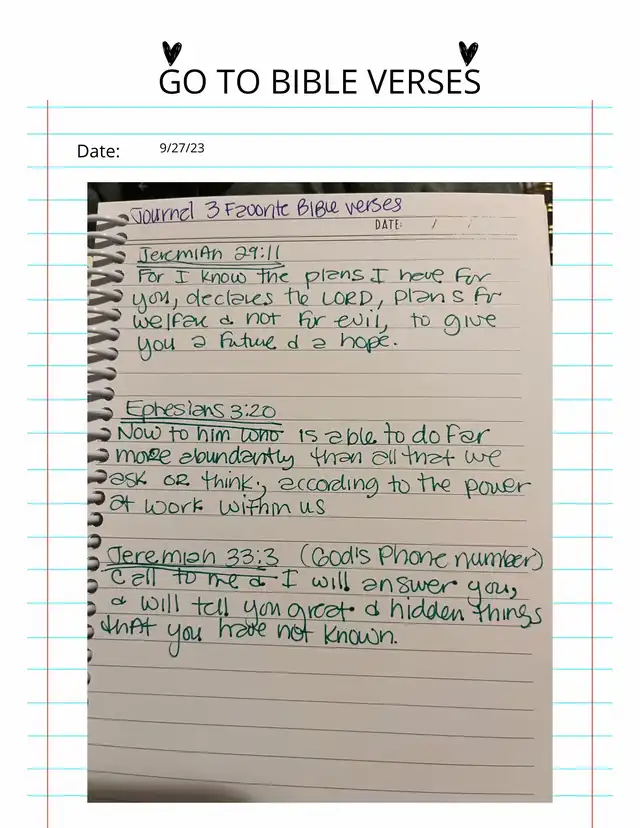 GO TO BIBLE VERSES
Date: 9/27/23
Journal 3 Favorite Bible verses
DATE: / /
Jeremiah 29:11
For I know the plans I have for
you, declares the LORD, plans for
welfare & not for evil, to give
you a future & a hope.
Ephesians 3:20
Now to him who is able to do far
more abundantly than all that we
ask or think, according to the power
at work within us
Jeremiah 33:3 (God's Phone number)
Call to me & I will answer you,
& will tell you great & hidden things
that you have not known.